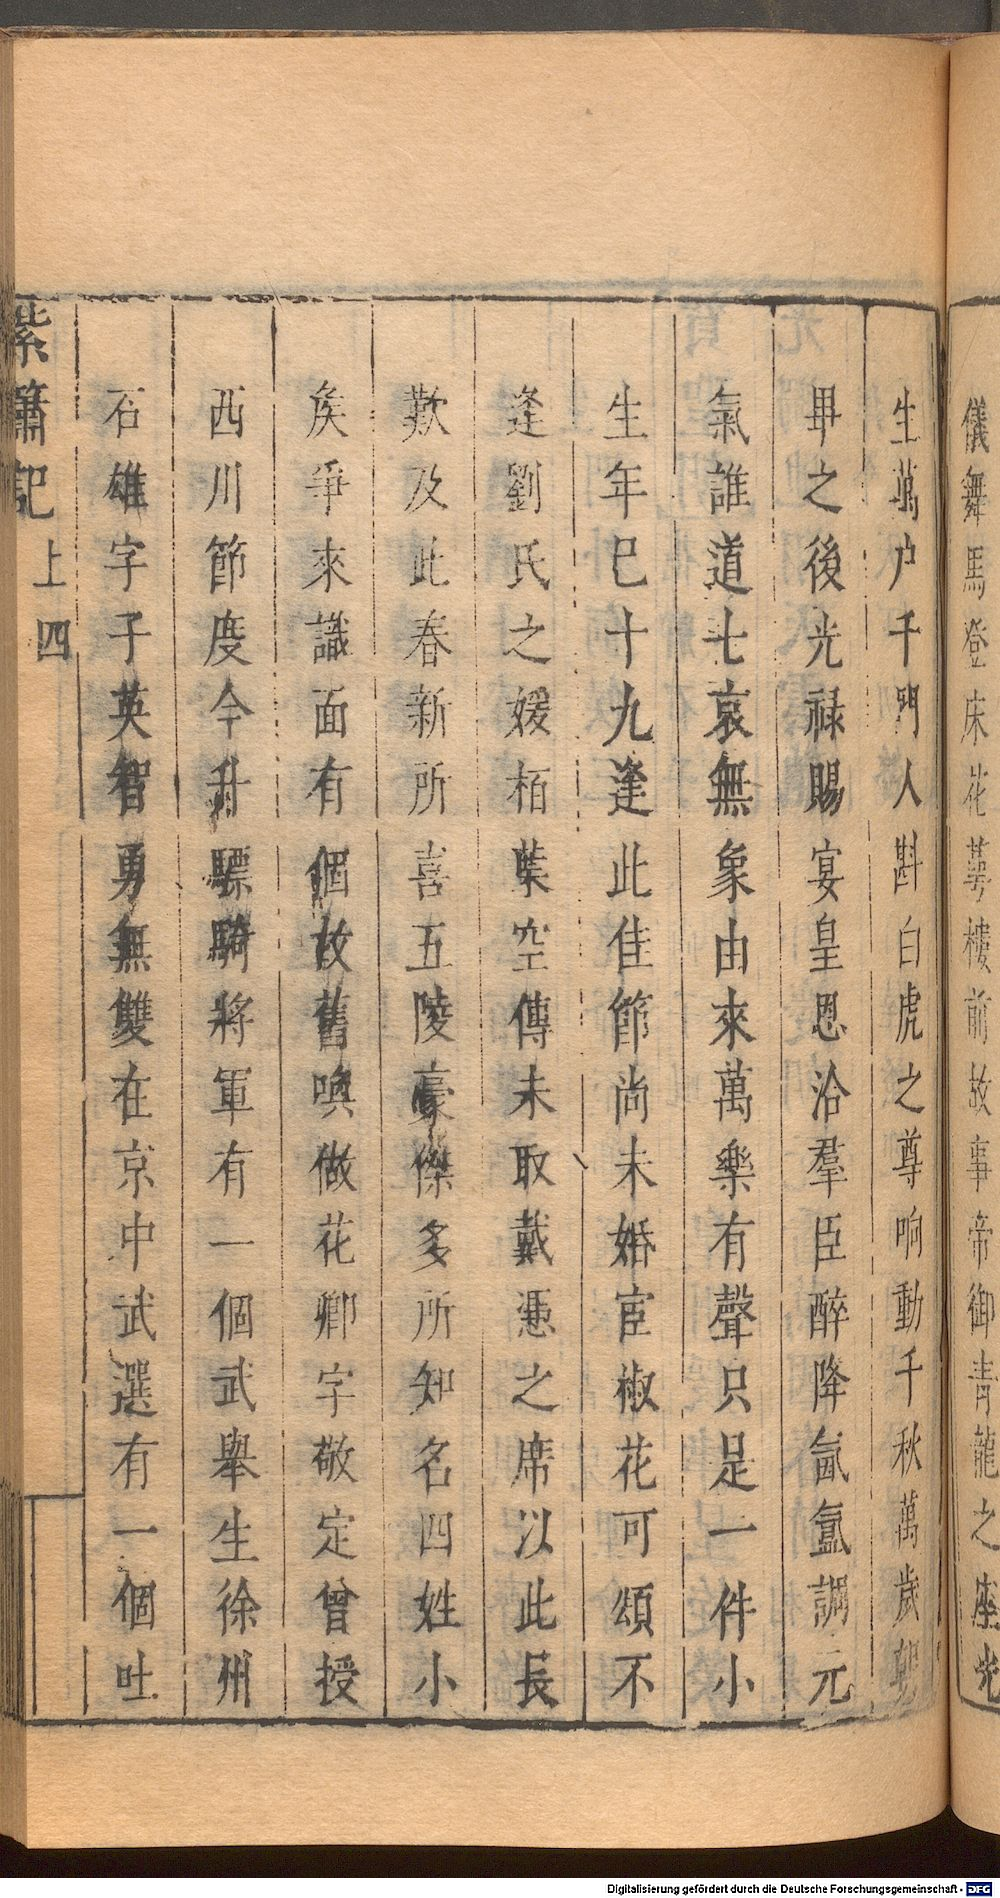 儀舞馬登床花萼樓前故事帝御青龍之座光
生萬户千門人斟白虎之尊响動千秋萬歲朝
畢之後光禄賜宴皇恩洽羣臣醉降氤氳調元
氣誰道七哀無象由來萬樂有聲只是一件小
生年巳十九逢此佳節尚未婚宦椒花可頌不
逢劉氏之媛栢葉空傳未取戴憑之席以此長
歎及此春新所喜五陵豪傑多所知名四姓小
矦爭來識面有個故舊喚做花卿字敬定曾授
西川節度今升驃騎將軍有一個武舉生徐州
石雄字子英智勇無雙在京中武選有一個吐
紫簫記 上 四
Digitalisierung gefördert durch die Deutsche Forschungsgemeinschaft - DFG